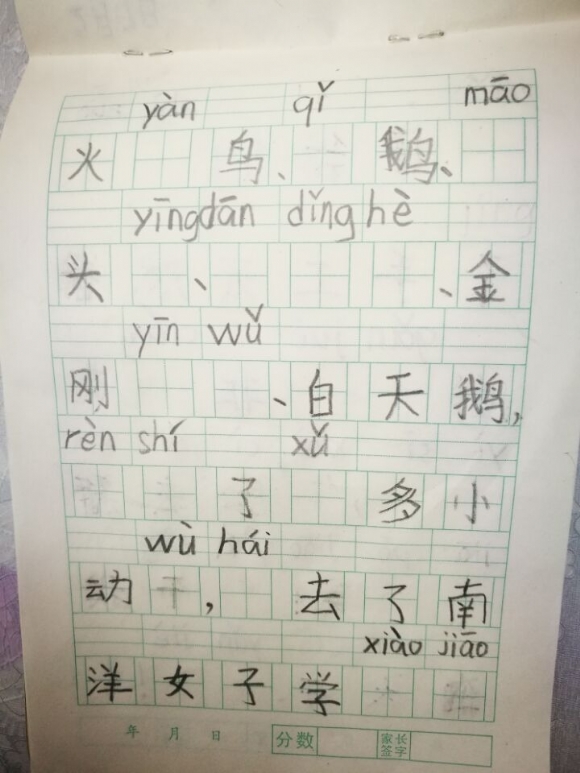 yàn qǐ māo
火 鸟、 鹅、
yīngdān dǐng hè
头 、 、金
yīn wǔ
刚 、白天鹅,
rèn shí xǔ
了 多小
wù hái
动 , 去了南
xiào jiāo
洋女子学
年 月 日 分数 家长签字